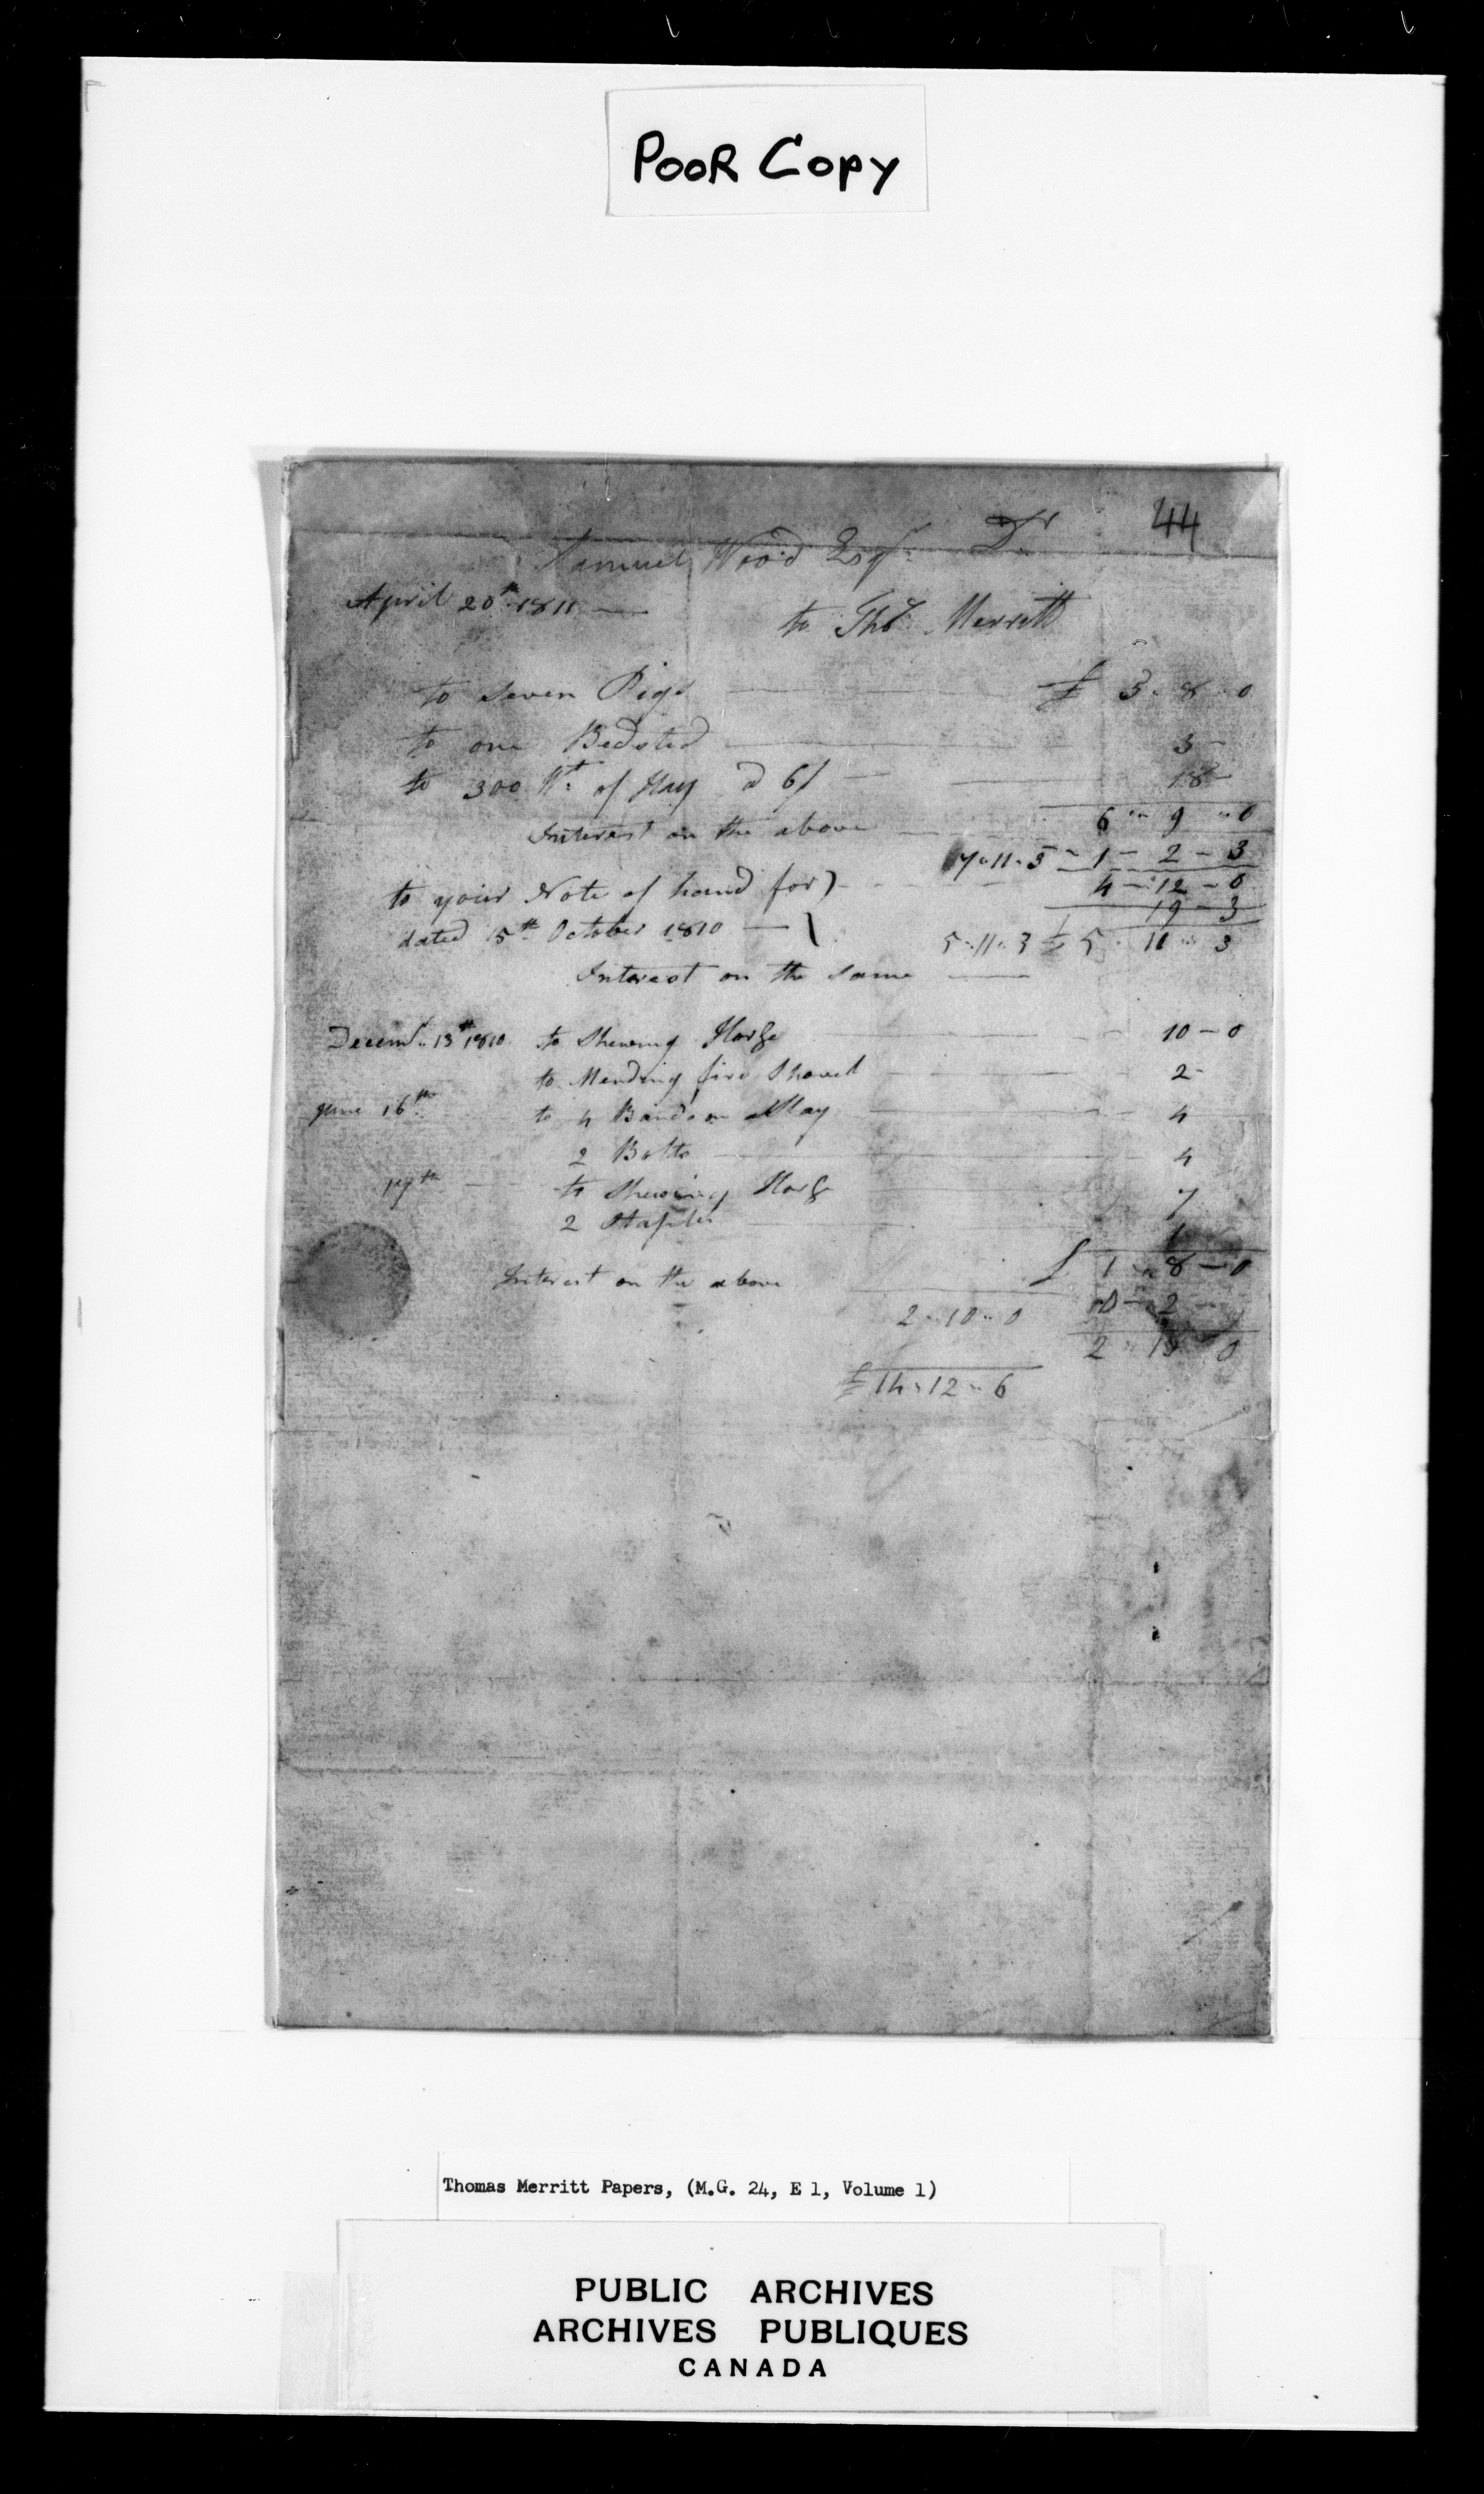 POOR COPY
44
Samuel Wood Esqr. Dr
April 20th 1811 —
to Thos Merritt
to seven Pigs — £ 3 .. 8 .. 0
to one Bedsted — 3 -
to 300 Wt. of Hay a 6/ — 18 -
6 .. 9 .. 0
Interest on the above — 7 .. 11 .. 3 - 1 - 2 - 3
to your Note of hand for) - 4 - 12 - 0
19 - 3
dated 15th October 1810 — 5 .. 11 .. 3 £ 5 .. 11 .. 3
Interest on the same —
Decemr. 13th 1810 to Shewing Horse — 10 - 0
to Mending fire Shovel — 2 -
June 16th to 4 Bands on — 4
2 Bolts — 4
17th — to Shewing Horse 7
2 Staples — 1
£ 1 .. 8 - 0
Interest on the above 2
2 .. 10 .. 0
2 .. 0
£ 14 .. 12 .. 6
Thomas Merritt Papers, (M.G. 24, E 1, Volume 1)
PUBLIC ARCHIVES
ARCHIVES PUBLIQUES
CANADA